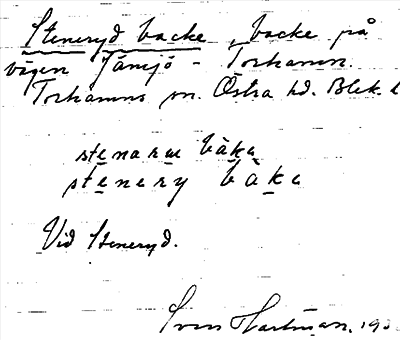 Steneryd backe, backe på
vägen Jämjö - Torhamn.
Torhamns sn. Östra hd. Blek. l
stenarӕ bàka
stenery bàka
Vid Steneryd.
Sven Hartman, 19